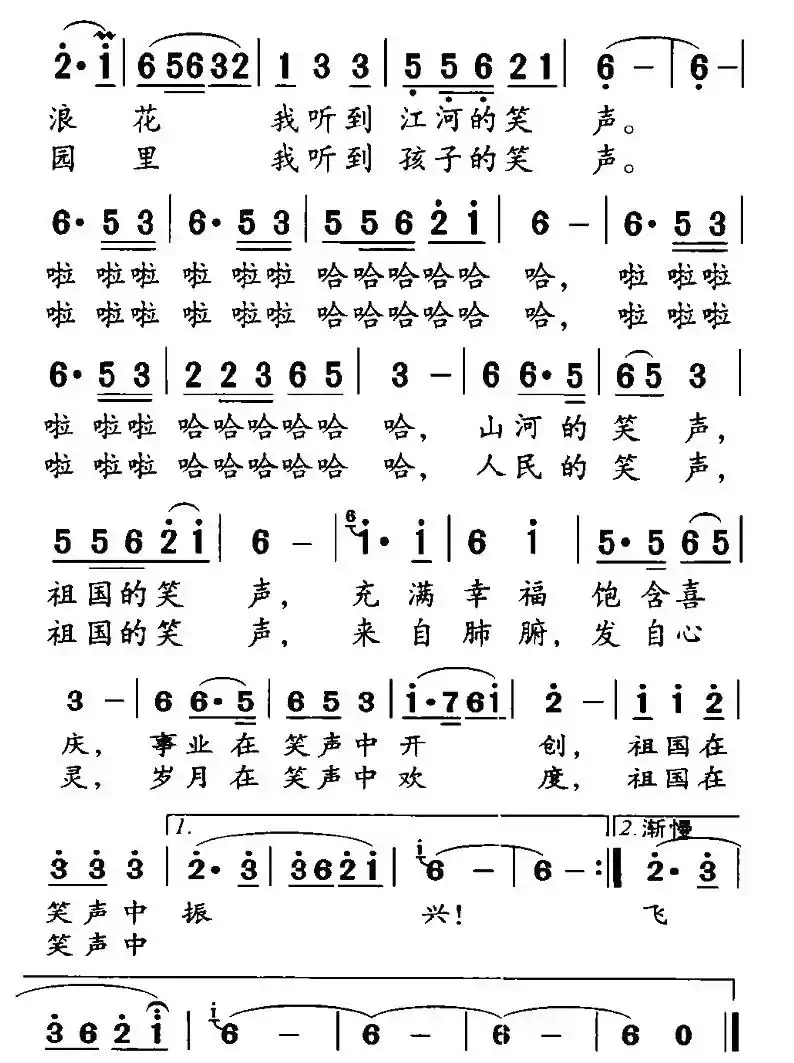 2·i | 6 56 32 | 1 3 3 | 5 5 6 2 1 | 6 – | 6 – |
浪 花 我听到 江河的笑 声。
园 里 我听到 孩子的笑 声。
6· 5 3 | 6· 5 3 | 5 5 6 2 i | 6 – | 6· 5 3 |
啦 啦啦 啦 啦啦 哈哈哈哈哈 哈, 啦 啦啦
啦 啦啦 啦 啦啦 哈哈哈哈哈 哈, 啦 啦啦
6· 5 3 | 2 2 3 6 5 | 3 – | 6 6· 5 | 6 5 3 |
啦 啦啦 哈哈哈哈哈 哈, 山河的 笑 声,
啦 啦啦 哈哈哈哈哈 哈, 人民的 笑 声,
5 5 6 2 i | 6 – | 6 i· i | 6 i | 5· 5 6 5 |
祖国的笑 声, 充 满 幸 福 饱 含喜
祖国的笑 声, 来 自 肺 腑, 发 自心
3 – | 6 6· 5 | 6 5 3 | i· 7 6 i | 2 – | i i 2 |
庆, 事业在 笑声中 开 创, 祖国在
灵, 岁月在 笑声中 欢 度, 祖国在
1. 2.渐慢
3 3 3 | 2· 3 | 3 6 2 i | i 6 – | 6 – :| 2· 3 |
笑声中 振 兴! 飞
笑声中
3 6 2 i | i 6 – | 6 – | 6 – | 6 0 |